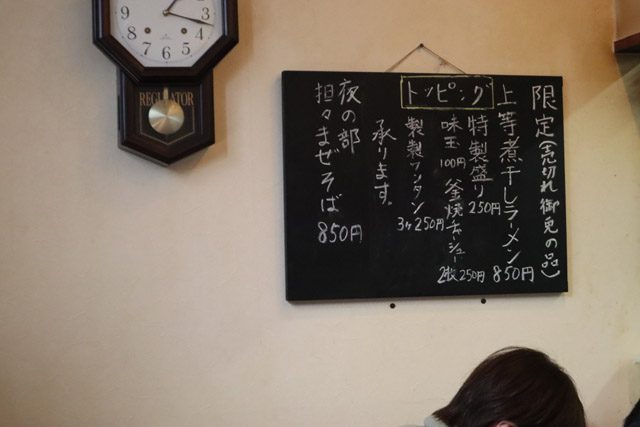 限定(売切れ御免の品)
上等煮干しラーメン850円
トッピング
特製盛り250円
味玉100円
釜焼チャーシュー2枚250円
製ワンタン3ヶ250円
承ります。
夜の部
担々まぜそば850円
REGULATOR
1
2
3
4
5
6
7
8
9